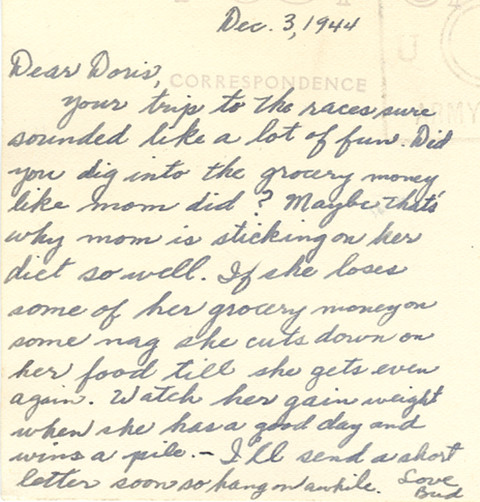 Dec. 3, 1944
Dear Doris,
CORRESPONDENCE
your trip to the races sure
sounded like a lot of fun. Did
you dig into the grocery money
like mom did? Maybe that's
why mom is sticking on her
diet so well. If she loses
some of her grocery money on
some nag she cuts down on
her food till she gets even
again. Watch her gain weight
when she has a good day and
wins a pile. - I'll send a short
letter soon so hang on awhile. Love
Bud
U
ARMY